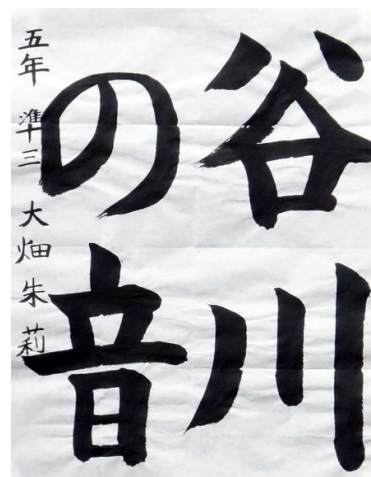 谷川
の音
五年 準三 大畑朱莉